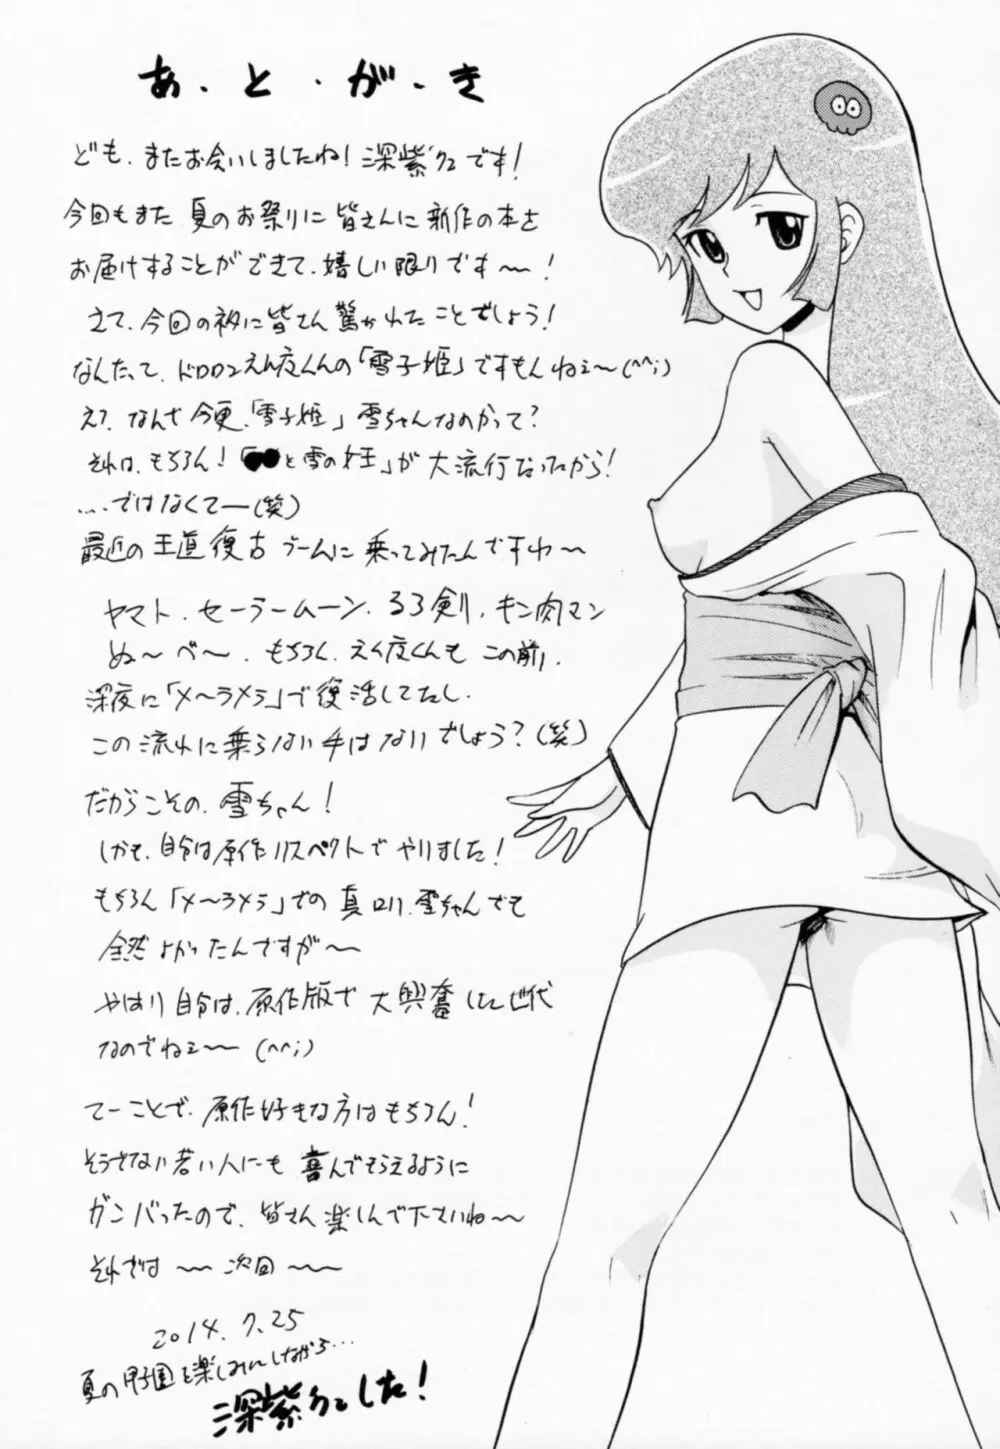 あ・と・が・き
ども、またお会いしましたね！深紫クエです！
今回もまた 夏のお祭りに 皆さんに 新作の本を
お届けすることができて、嬉しい限りです〜！
さて、今回のネタに皆さん驚かれたことでしょう！
なんたって、ドロロンえん魔くんの「雪子姫」ですもんねェ〜(^^;)
え？なんで今更、「雪子姫」雪ちゃんなのかって？
それは、もちろん！「●●と雪の女王」が 大流行だったから！
....ではなくてー(笑)
最近の王道復古ブームに乗ってみたんですわ〜
ヤマト、セーラームーン、るろ剣、キン肉マン
ぬ〜べ〜、もちろん、えん魔くんも この前、
深夜に「メ〜ラメラ」で復活してたし、
この流れに乗らない手はないでしょう？(笑)
だからこその、雪ちゃん！
しかも、自分は原作リスペクトでやりました！
もちろん「メ〜ラメラ」での真ロリ雪ちゃんでも
全然よかったんですが〜
やはり自分は、原作版で大興奮した世代
なのでねェ〜 (^^;)
てーことで、原作好きな方はもちろん！
そうでない若い人にも喜んでもらえるように
ガンバったので、皆さん楽しんで下さいね〜
それでは 〜 次回 〜
2014.7.25
夏の甲子園を楽しみにしながら...
深紫クエでした！